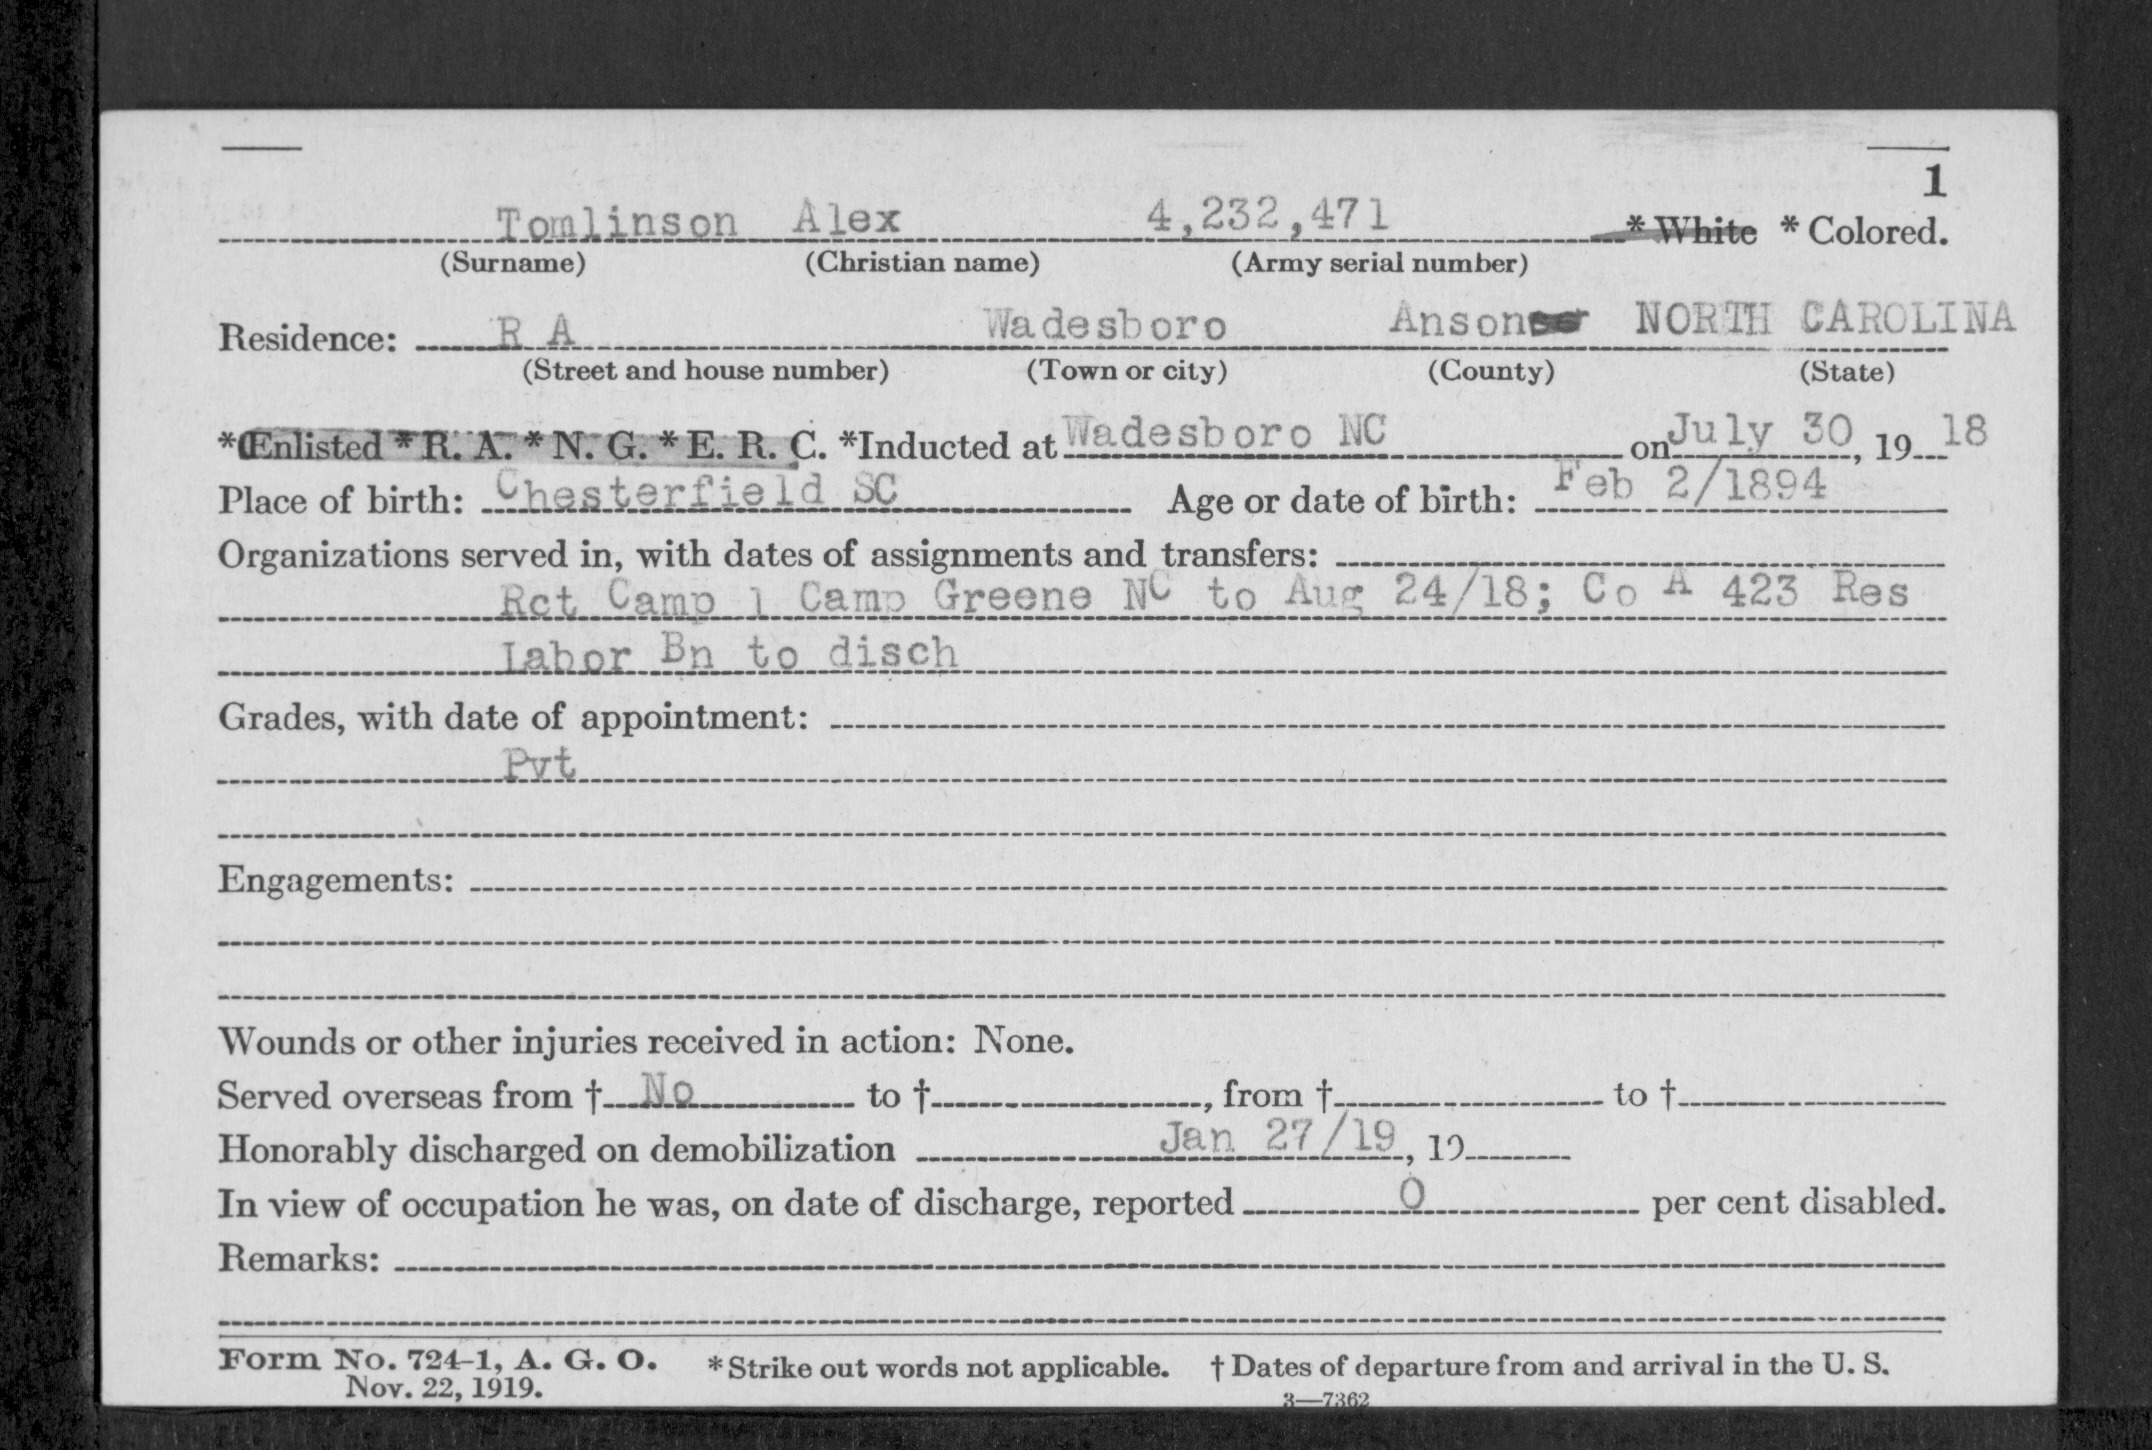 1
Tomlinson Alex 4,232,471 * White * Colored.
(Surname) (Christian name) (Army serial number)
Residence: R A Wadesboro Anson NORTH CAROLINA
(Street and house number) (Town or city) (County) (State)
*Enlisted * R. A. * N. G. * E. R. C. *Inducted at Wadesboro NC on July 30, 19 18
Place of birth: Chesterfield SC Age or date of birth: Feb 2/1894
Organizations served in, with dates of assignments and transfers:
Rct Camp 1 Camp Greene NC to Aug 24/18; Co A 423 Res
Labor Bn to disch
Grades, with date of appointment:
Pvt
Engagements:
Wounds or other injuries received in action: None.
Served overseas from † No to †, from † to †
Honorably discharged on demobilization Jan 27/19, 19
In view of occupation he was, on date of discharge, reported 0 per cent disabled.
Remarks:
Form No. 724-1, A. G. O. * Strike out words not applicable. † Dates of departure from and arrival in the U. S.
Nov. 22, 1919.
3—7362